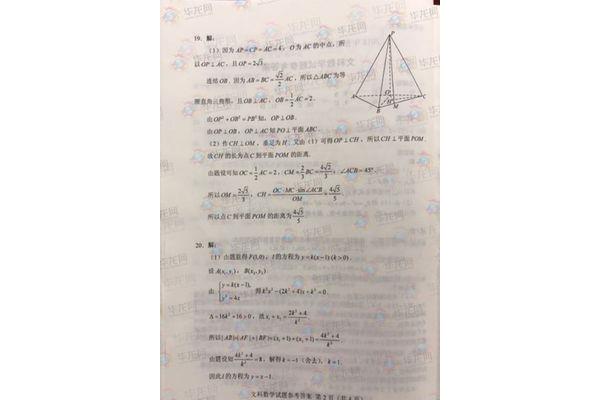 19. 解：
（1）因为 AP=CP=AC=4，O 为 AC 的中点，所
以 OP⊥AC，且 OP=2√3.
连结 OB. 因为 AB=BC=√2/2 AC，所以△ABC 为等
腰直角三角形，且 OB⊥AC，OB=1/2 AC=2.
由 OP²+OB²=PB² 知，OP⊥OB.
由 OP⊥OB，OP⊥AC 知 PO⊥平面 ABC.
（2）作 CH⊥OM，垂足为 H. 又由（1）可得 OP⊥CH，所以 CH⊥平面 POM.
故 CH 的长为点 C 到平面 POM 的距离.
由题设可知 OC=1/2 AC=2，CM=2/3 BC=4√2/3，∠ACB=45°.
所以 OM=2√5/3，CH=OC·MC·sin∠ACB/OM=4√5/5.
所以点 C 到平面 POM 的距离为 4√5/5.
P
A
O
C
H
B
M
20. 解：
（1）由题意得 F(1,0)，l 的方程为 y=k(x-1)(k>0).
设 A(x₁,y₁)，B(x₂,y₂).
由 {y=k(x-1), y²=4x 得 k²x²-(2k²+4)x+k²=0.
Δ=16k²+16>0，故 x₁+x₂=2k²+4/k².
所以 |AB|=|AF|+|BF|=(x₁+1)+(x₂+1)=4k²+4/k².
由题设知 4k²+4/k²=8，解得 k=-1（舍去），k=1.
因此 l 的方程为 y=x-1.
文科数学试题参考答案 第 2 页（共 4 页）
华龙网